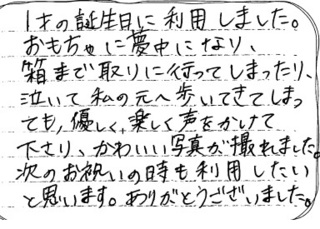 1才の誕生日に利用しました。
おもちゃに夢中になり、
箱まで取りに行ってしまったり、
泣いて私の元へ歩いてきてしまっ
ても、優しく、楽しく声をかけて
下さり、かわいい写真が撮れました。
次のお祝いの時も利用したい
と思います。ありがとうございました。